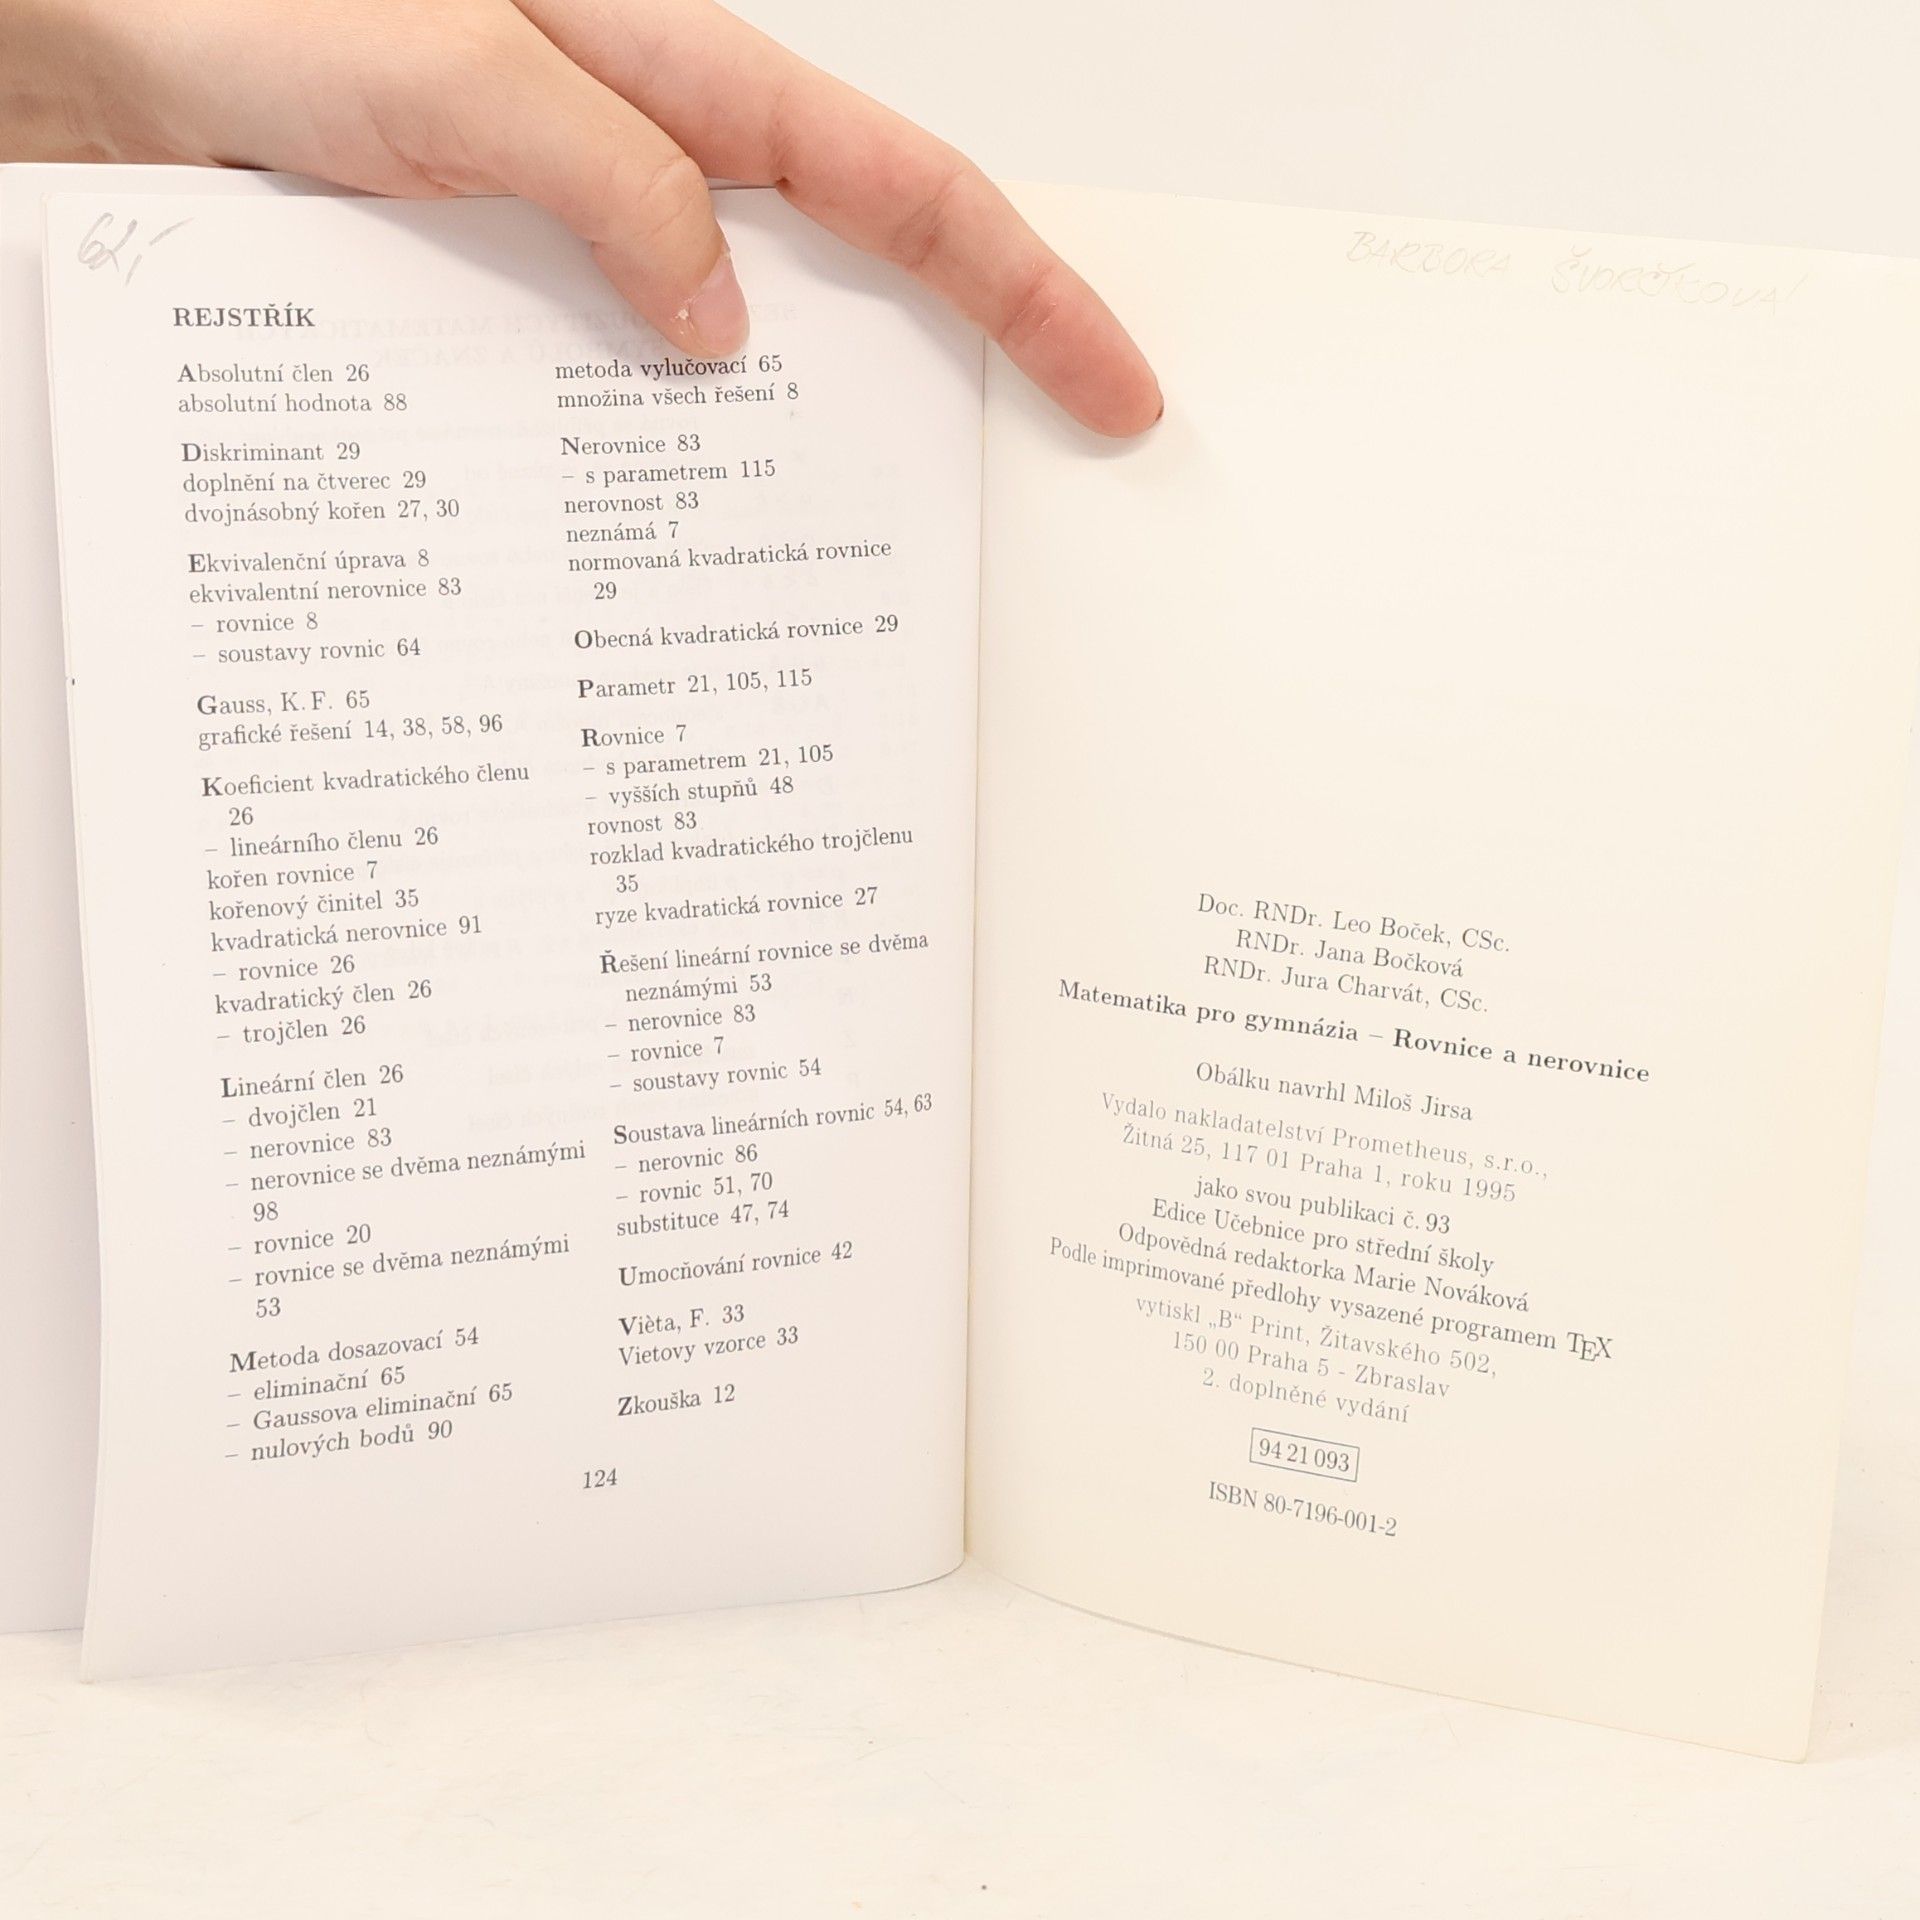 62,-
REJSTŘÍK
Absolutní člen 26
absolutní hodnota 88
Diskriminant 29
doplnění na čtverec 29
dvojnásobný kořen 27, 30
Ekvivalenční úprava 8
ekvivalentní nerovnice 83
– rovnice 8
– soustavy rovnic 64
Gauss, K. F. 65
grafické řešení 14, 38, 58, 96
Koeficient kvadratického členu
26
– lineárního členu 26
kořen rovnice 7
kořenový činitel 35
kvadratická nerovnice 91
– rovnice 26
kvadratický člen 26
– trojčlen 26
Lineární člen 26
– dvojčlen 21
– nerovnice 83
– nerovnice se dvěma neznámými
98
– rovnice 20
– rovnice se dvěma neznámými
53
Metoda dosazovací 54
– eliminační 65
– Gaussova eliminační 65
– nulových bodů 90
metoda vylučovací 65
množina všech řešení 8
Nerovnice 83
– s parametrem 115
nerovnost 83
neznámá 7
normovaná kvadratická rovnice
29
Obecná kvadratická rovnice 29
Parametr 21, 105, 115
Rovnice 7
– s parametrem 21, 105
– vyšších stupňů 48
rovnost 83
rozklad kvadratického trojčlenu
35
ryze kvadratická rovnice 27
Řešení lineární rovnice se dvěma
neznámými 53
– nerovnice 83
– rovnice 7
– soustavy rovnic 54
Soustava lineárních rovnic 54, 63
– nerovnic 86
– rovnic 51, 70
substituce 47, 74
Umocňování rovnice 42
Vièta, F. 33
Vietovy vzorce 33
Zkouška 12
124
BARBORA ŠVORČÍKOVÁ
Doc. RNDr. Leo Boček, CSc.
RNDr. Jana Bočková
RNDr. Jura Charvát, CSc.
Matematika pro gymnázia – Rovnice a nerovnice
Obálku navrhl Miloš Jirsa
Vydalo nakladatelství Prometheus, s.r.o.,
Žitná 25, 117 01 Praha 1, roku 1995
jako svou publikaci č. 93
Edice Učebnice pro střední školy
Odpovědná redaktorka Marie Nováková
Podle imprimované předlohy vysazené programem TEX
vytiskl „B“ Print, Žitavského 502,
150 00 Praha 5 - Zbraslav
2. doplněné vydání
94 21 093
ISBN 80-7196-001-2